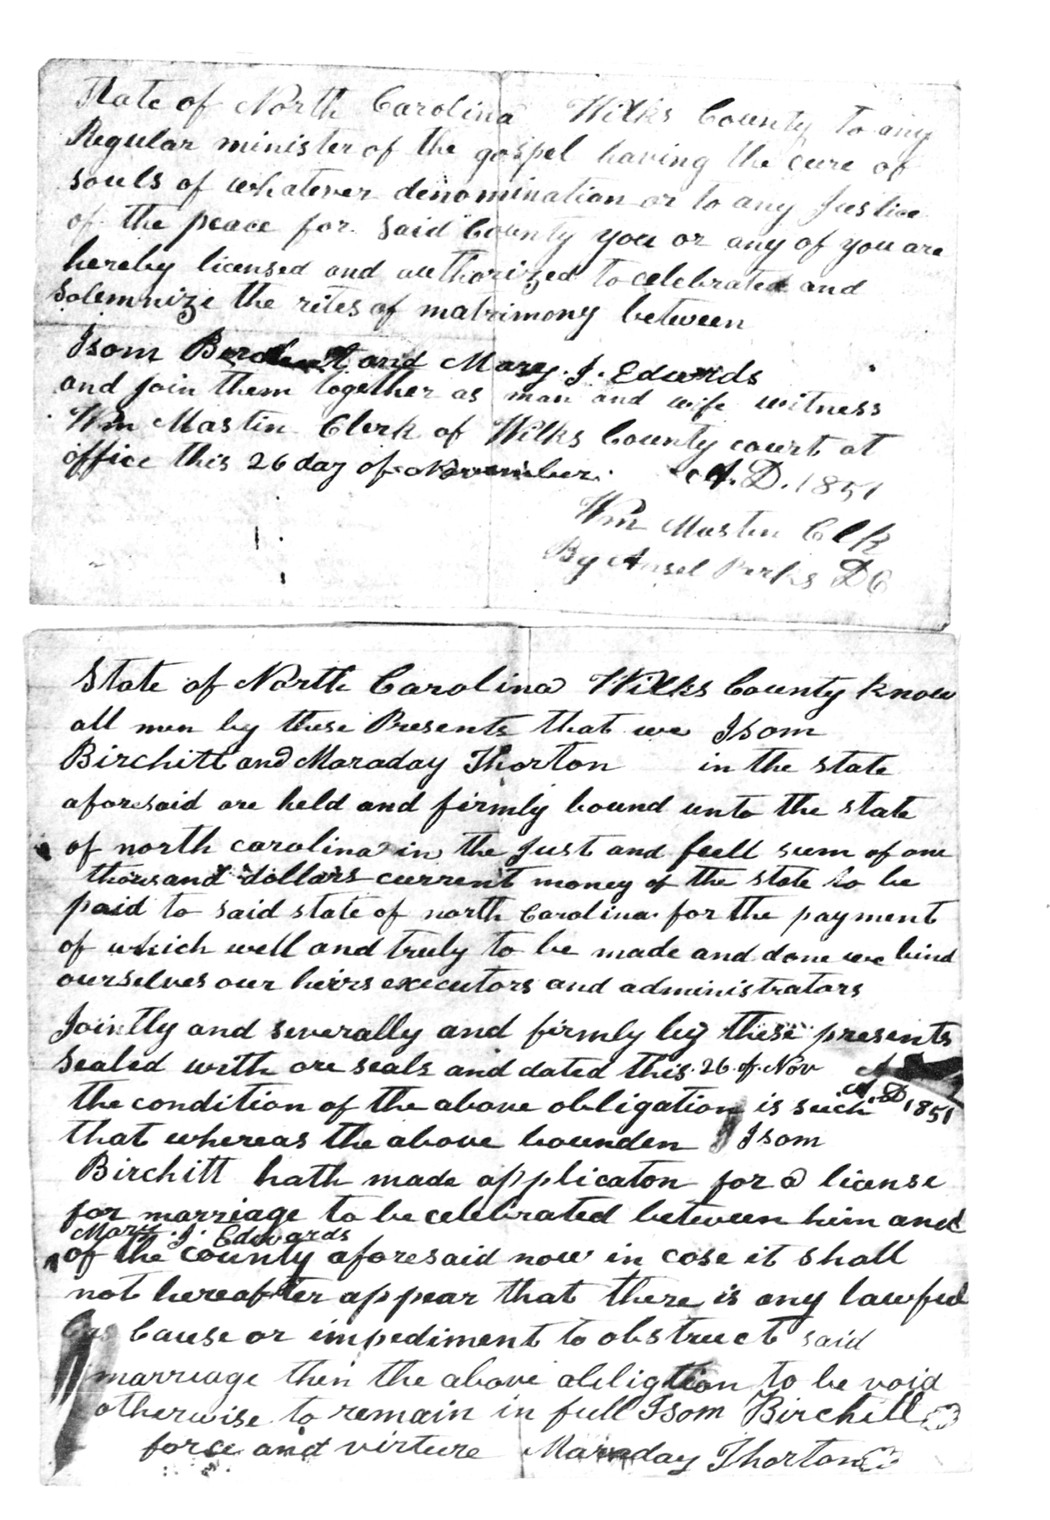 State of North Carolina Wilks County to any
Regular minister of the gospel having the cure of
souls of whatever denomination or to any Justice
of the peace for said County you or any of you are
hereby licensed and authorized to celebrated and
Solemnize the rites of matrimony between
Isom and Mary. J. Edwards
and join them together as man and wife witness
Wm Mastin Clerk of Wilks County court at
office this 26 day of November A. D. 1851
Wm Mastin Clk
By Ansel Parks DC
State of North Carolina Wilks County know
all men by these Presents that we Isom
Birchitt and Maraday Thorton in the state
aforesaid are held and firmly bound unto the state
of north carolina in the Just and full sum of one
thousand dollars current money of the state to be
paid to said state of north Carolina for the payment
of which well and truly to be made and done we bind
ourselves our heirs executors and administrators
Jointly and severally and firmly by these presents
Sealed with ore seals and dated this 26 of Nov
A. D. 1851
the condition of the above obligation is such
that whereas the above bounden Isom
Birchitt hath made applicaton for a license
for marriage to be celebrated between him and
Mary. J. Edwards
of the county aforesaid now in case it shall
not hereafter appear that there is any lawful
Cause or impediment to obstruct said
marriage then the above obligtion to be void
otherwise to remain in full Isom Birchitt
force and virture Maraday Thorton